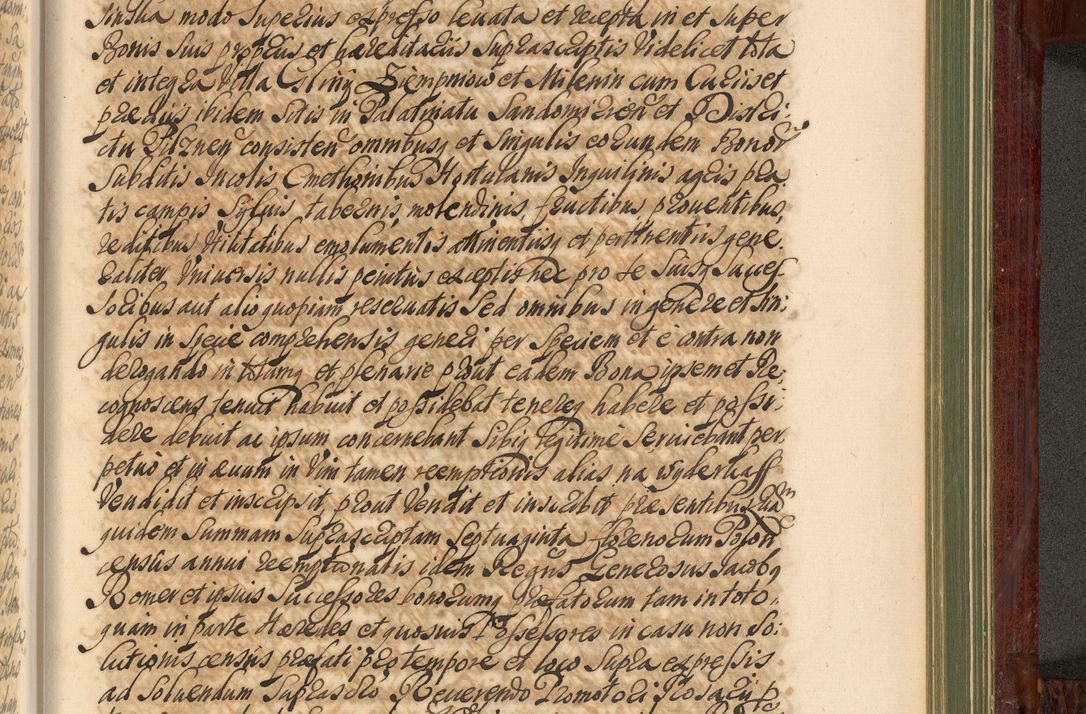 modo Superius expresso levata et recepta in et Super
Bonis Suis proprus et haereditarus Supra scriptis Videlicet tota
et integra Villa Gliny Ziempniow et Milenin cum Curiis et
praedijs ibidem Sitis in Palatinatu Sandomirien et Distri:
ctu Pilznen consisten omnibusq et Singulis eorundem Bonor
Subditis Incolis Cmethonibus Hortulanis Inquilinis agris pra
tis campis Sylvis, tabernis, molendinis, fructibus proventibus,
reditibus Utilitatibus emolumentis attinentiisq et pertinentiis gene
raliter Universis nullis penitus exceptis nec pro se Suisq Succes
Soribus aut alio quopiam reservatis Sed omnibus in genere et Sin:
gulis in Specie comprehensis generi per Speciem et e contra non
derogando in totumq et plenarie prout eadem Bona ipsemet Re:
cognoscens tenuit habuit et possidebat tenereq habere et possi:
dere debuit ac ipsum concernebant Sibiq legitime Serviebant per
petuo et in aevum in Vim tamen reemptionis alias na wyderkaff
Vendidit et inscripsit, prout Vendit et inscribit praesentibus, Quam
quidem Summam Suprascriptam Septuaginta florenorum Polon
census annui reemptionalis idem Recgns Generosus Jacobq
Bomer et ipsius Successores bonorumq praefatorum tam in toto,
quam in parte Haeredes et quosvis Possessores in casu non So:
lutionis census praefati pro tempore et loco Supra expressis
ad Solvendum Suprascrto Reverendo Promotori Rosarij